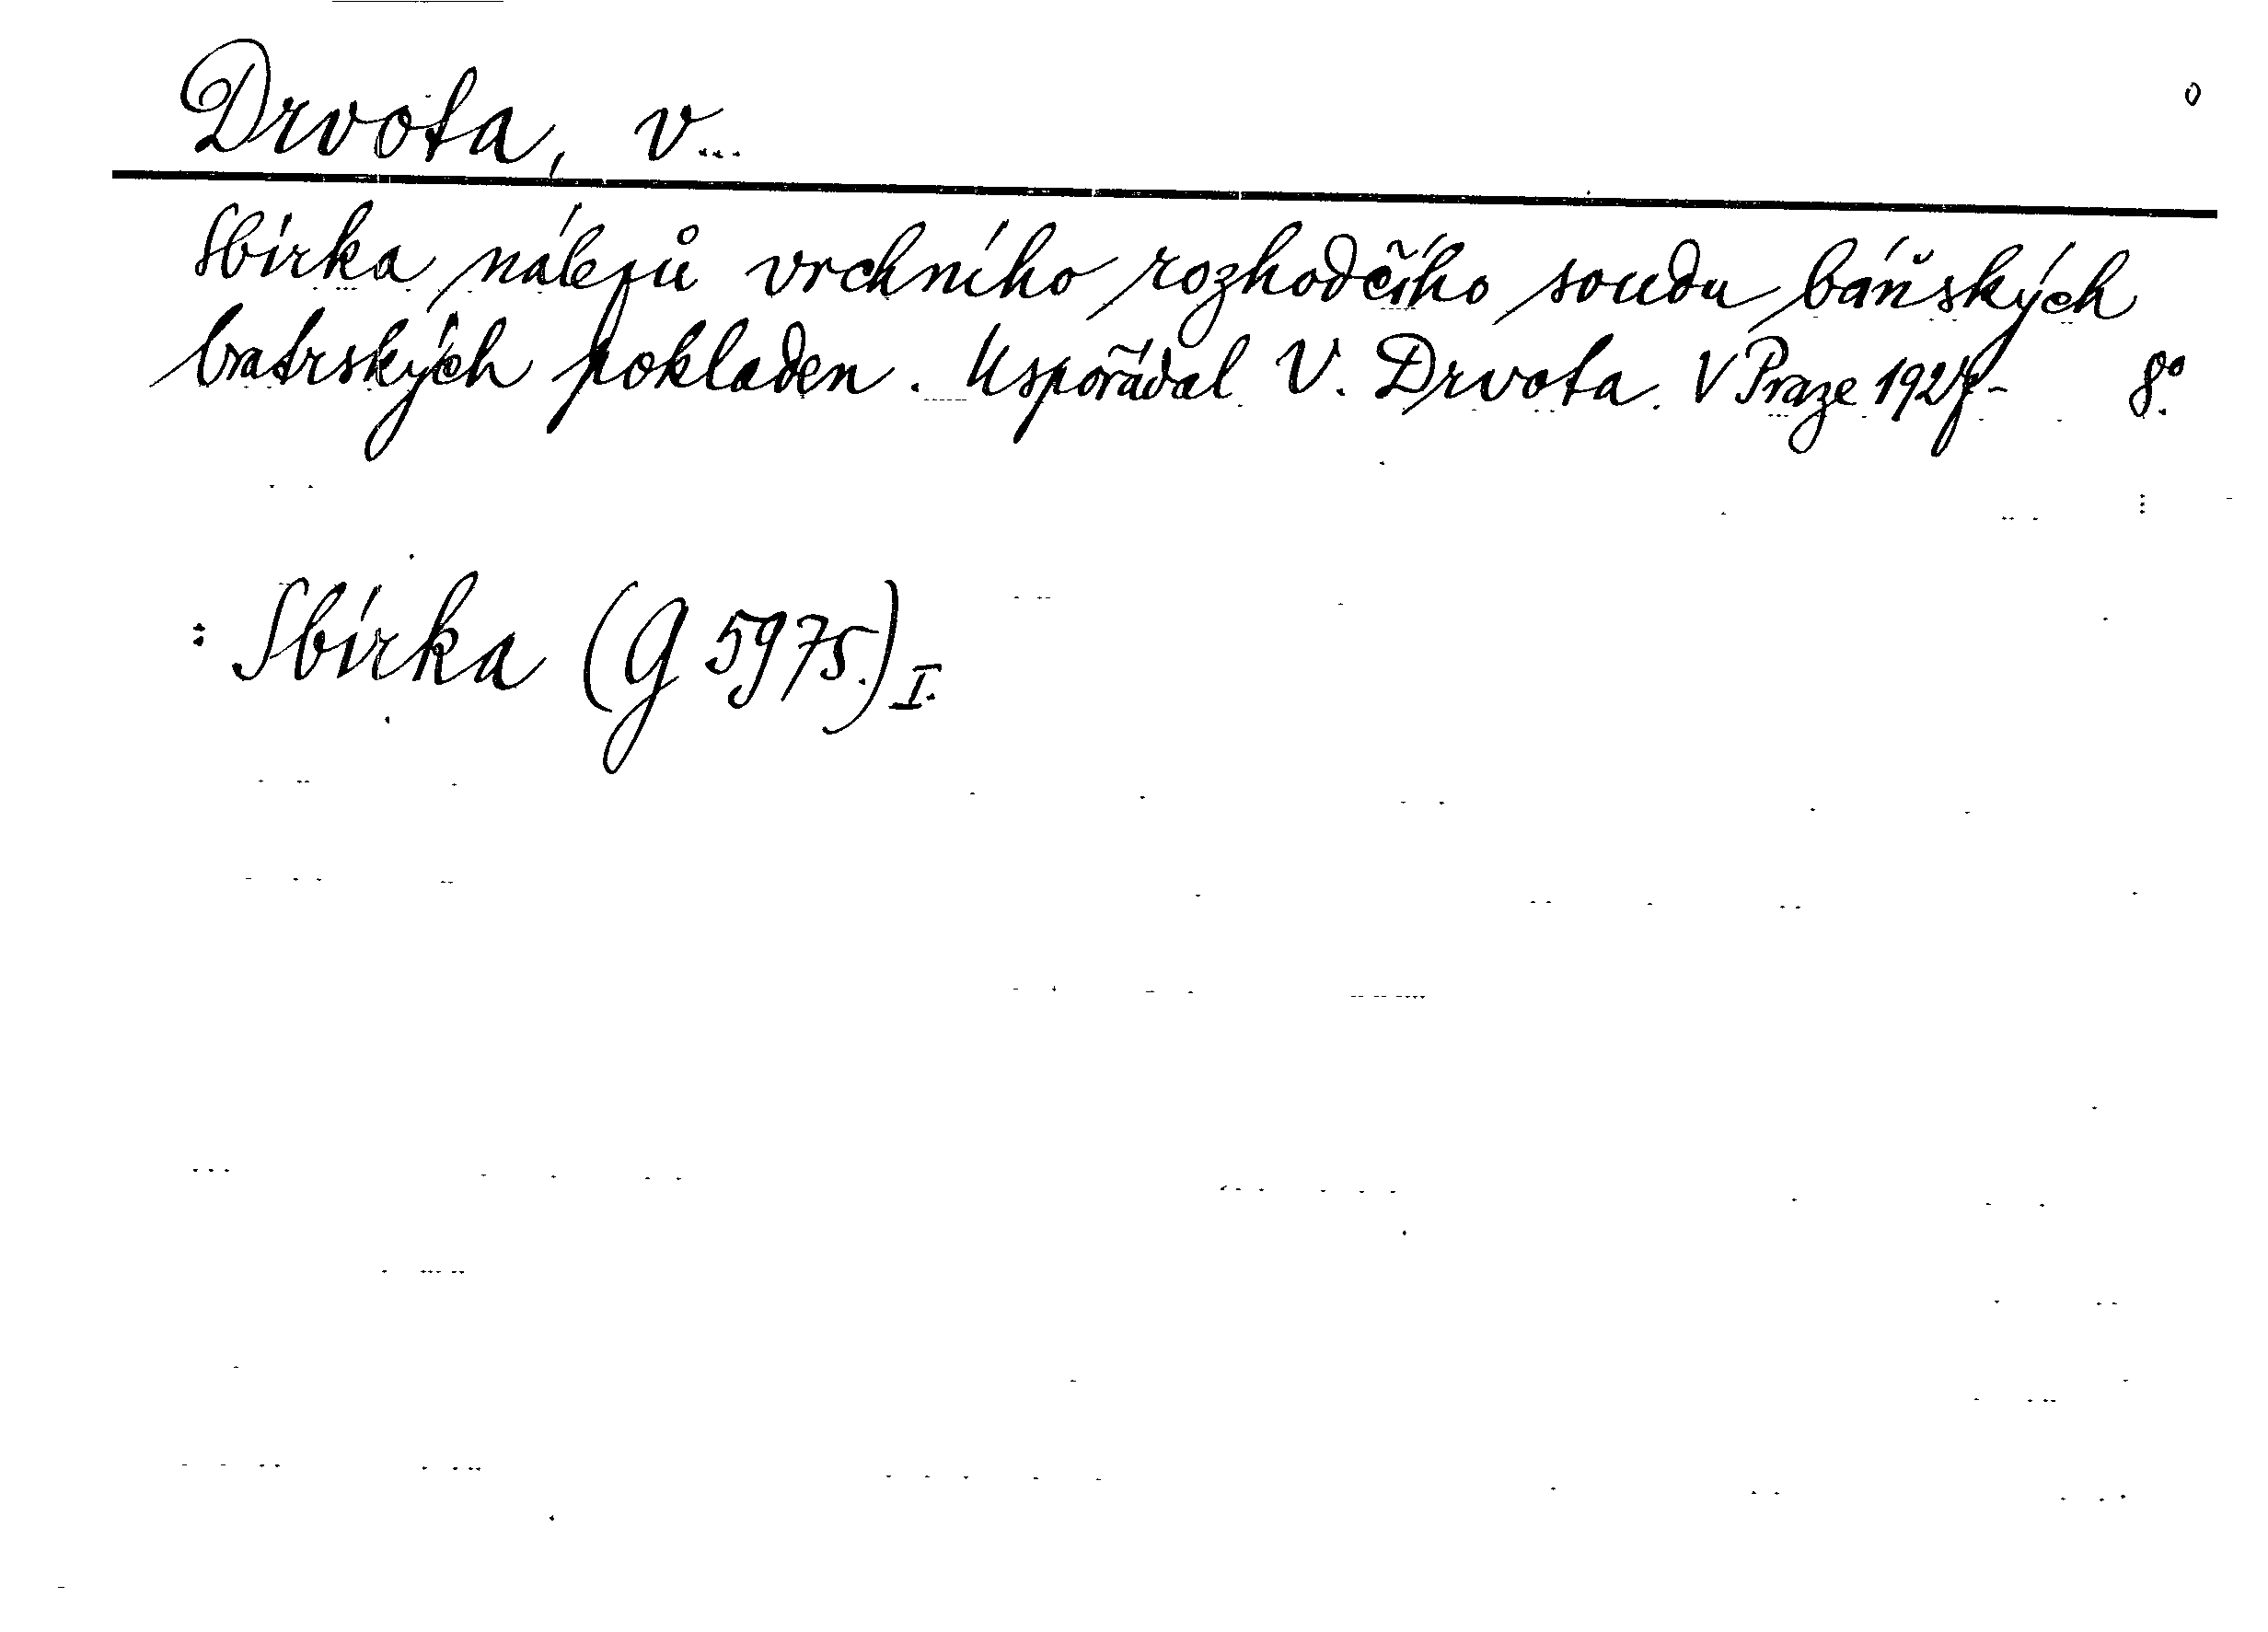 Drvota, V...
Sbírka nálezů vrchního rozhodčího soudu báňských
bratrských pokladen. Uspořádal V. Drvota. V Praze 1927- 8°.
: Sbírka (G 5975.) I.